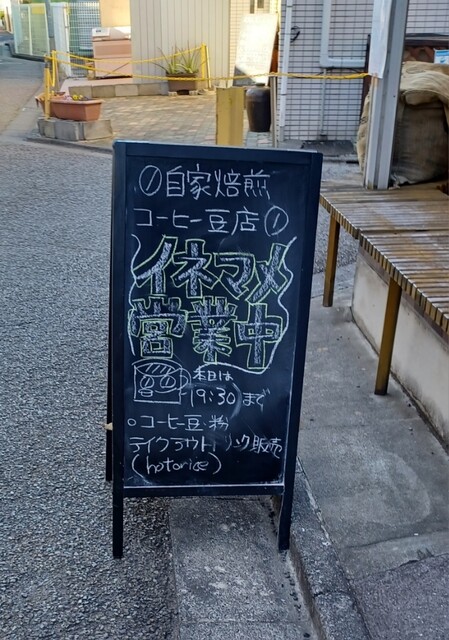 自家焙煎
コーヒー豆店
イネマメ
営業中
本日は
19:30まで
○コーヒー豆・粉
テイクアウトドリンク販売
(hotorice)